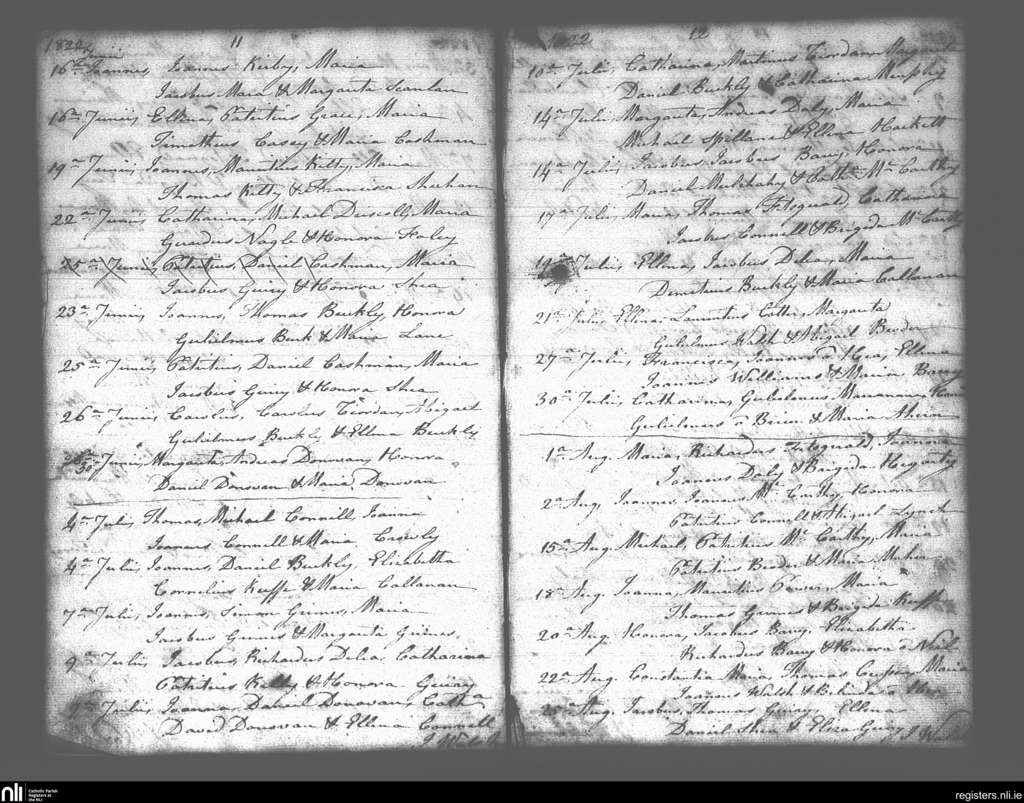 1822 11
16th Joannes, Joannes Kirby, Maria
Jacobus Mara & Margarita Scanlan
16th Junii, Ellena, Patritius Grace, Maria
Timotheus Casey & Maria Cashman
19th Junii, Joannes, Mauritius Kelly, Maria
Thomas Kelly & Francisca Sheehan
22nd Junii Catharina, Michael Driscoll, Maria
Gerardus Nagle & Honora Foley
25th Junii, Patritius, Daniel Cashman, Maria
Jacobus Guiry & Honora Shea
23rd Junii, Joannes, Thomas Buckly, Honora
Gulielmus Burk & Maria Lane
25th Junii, Patritius, Daniel Cashman, Maria
Jacobus Guiry & Honora Shea
26th Junii, Carolus, Carolus Riordan, Abigail
Gulielmus Buckly & Ellena Buckly
30 Junii, Margarita, Andreas Donovan, Honora
Daniel Donovan & Maria Donovan
4th Julii, Thomas, Michael Connell, Joanna
Joannes Connell & Maria Crowly
4th Julii, Joannes, Daniel Buckly, Elizabetha
Cornelius Keeffe & Maria Callanan
7th Julii, Joannes, Simon Grimes, Maria
Jacobus Grimes & Margarita Grimes
9th Julii, Jacobus, Richardus Delea, Catharina
Patritius Kelly & Honora Guiry
9th Julii, Joanna, Daniel Donovan, Cath
David Donovan & Ellena Connell
1822 12
10th Julii, Catharina, Martinus Riordan, Margarita
Daniel Buckly & Catharina Murphy
14th Julii Margarita, Andreas Daly, Maria
Michael Spillane & Ellena Hackett
14th Julii, Jacobus, Jacobus Barry, Honora
Daniel Mulchahy & Cath. McCarthy
19th Julii, Maria, Thomas Fitzgerald, Catharina
Jacobus Connell & Brigida McCarthy
19th Julii, Ellena, Jacobus Delea, Maria
Demetrius Buckly & Maria Callanan
21st Julii, Ellena, Laurentius Cotter, Margarita
Gulielmus Walsh & Abigail
27th Julii, Francisca, Joannes o Hea, Ellena
Joannes Williams & Maria Barry
30th Julii, Catharina, Gulielmus
Gulielmus o Brien & Maria Ahern
1st Aug. Maria, Richardus Fitzgerald, Joanna
Joannes Daly & Brigida Hegarty
2nd Aug. Joannes, Joannes McCarthy, Honora
Patritius Connell & Abigail Lynch
15th Aug. Michael, Patritius McCarthy, Maria
Patritius & Maria
18th Aug. Joanna, Mauritius Power, Maria
Thomas & Brigida Keeffe
20th Aug. Honora, Jacobus Barry, Elizabetha
Richardus Barry & Honora o Neil
22nd Aug. Constantia Maria, Thomas, Maria
Joannes Walsh &
Aug. Jacobus, Thomas Guiry, Ellena
Daniel Shea & Eliza Guiry
nli Catholic Parish Registers at the NLI
registers.nli.ie